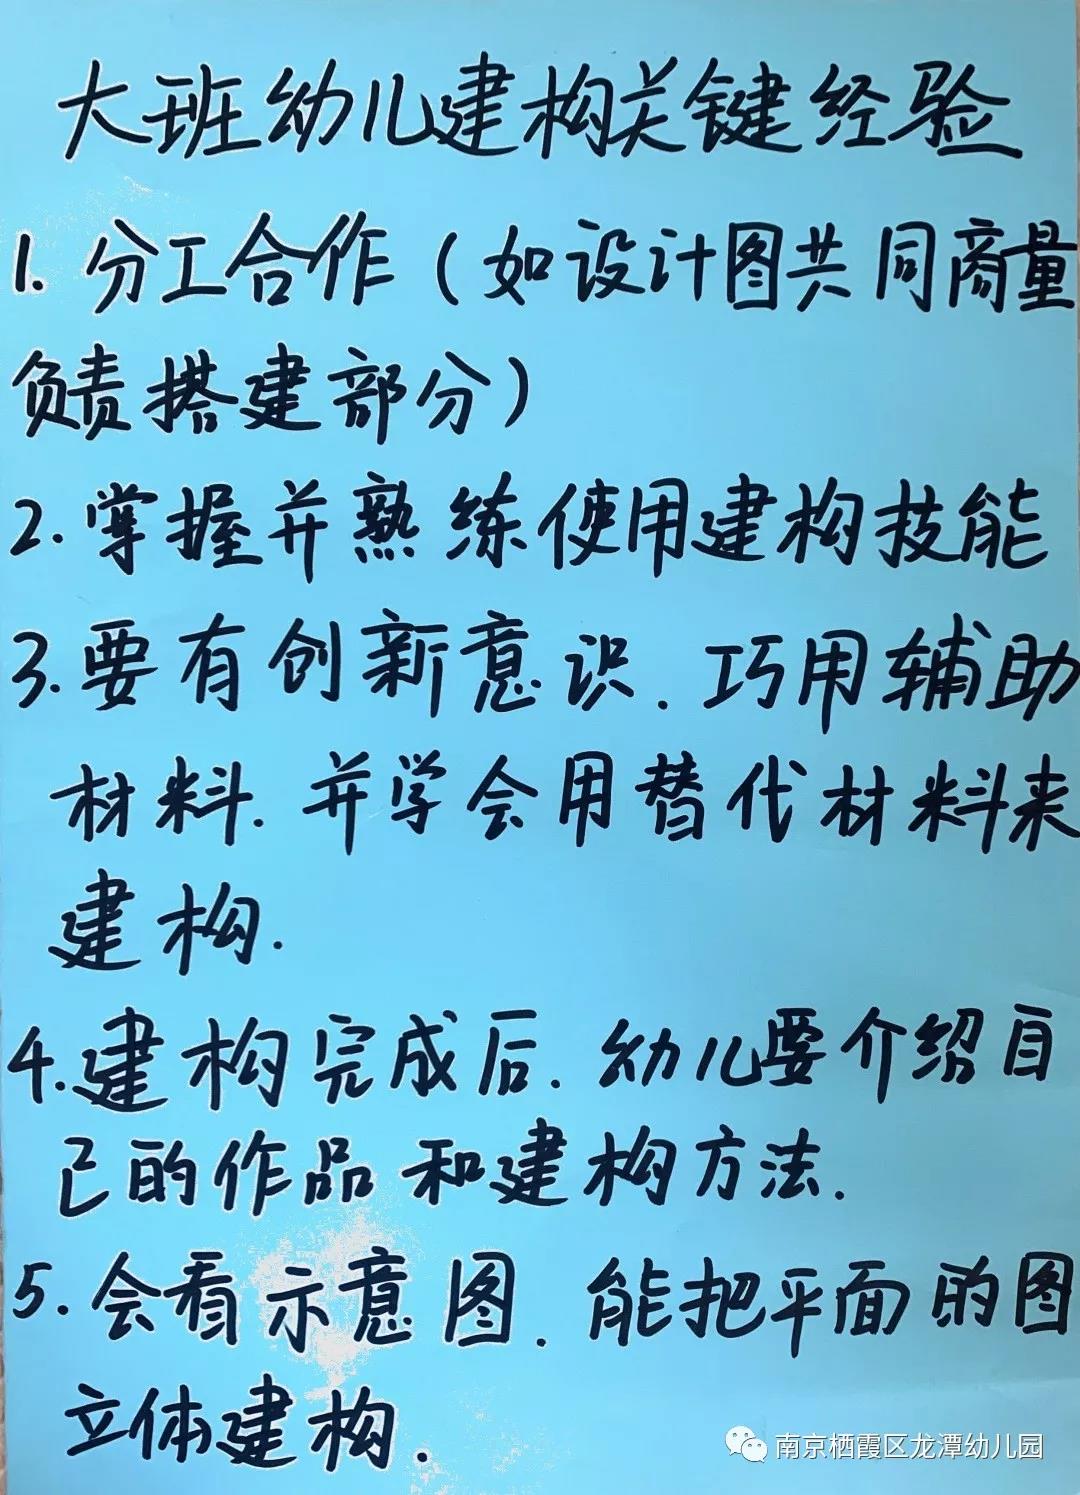 大班幼儿建构关键经验
1. 分工合作（如设计图共同商量
负责搭建部分）
2. 掌握并熟练使用建构技能
3. 要有创新意识. 巧用辅助
材料. 并学会用替代材料来
建构.
4. 建构完成后. 幼儿要介绍自
己的作品和建构方法.
5. 会看示意图. 能把平面的图
立体建构.
南京栖霞区龙潭幼儿园